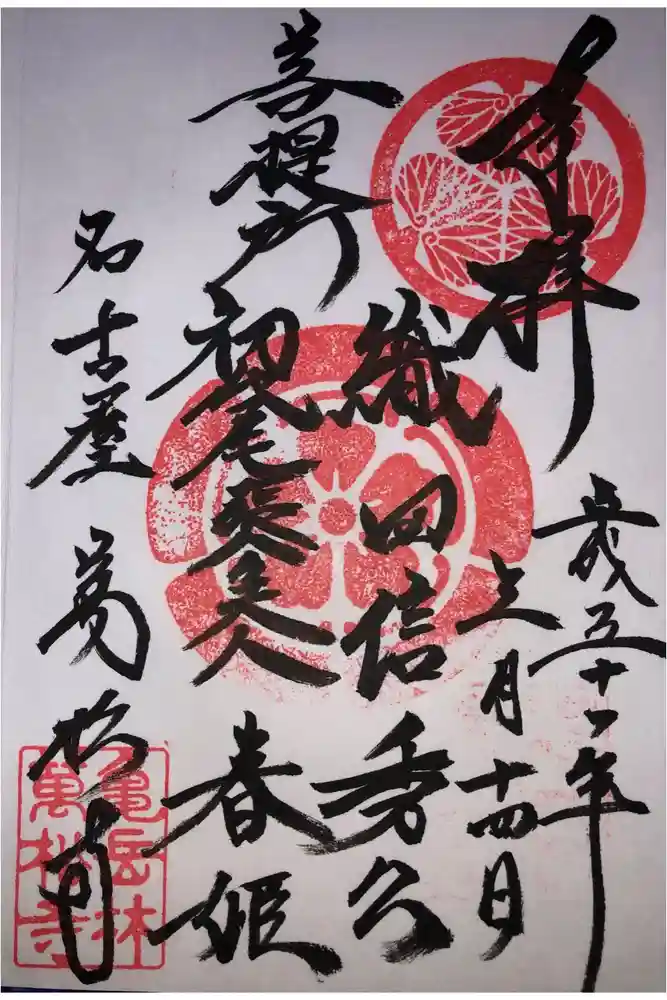 奉拝
平成三十一年
月十四日
菩提所
織田信秀公
初代尾張夫人 春姫
名古屋 萬松寺
亀岳林
萬松寺